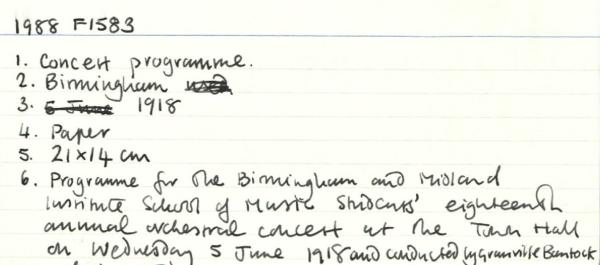 1988 F1583
1. Concert programme.
2. Birmingham
3. 5 June 1918
4. Paper
5. 21×14 cm
6. Programme for the Birmingham and Midland
Institute School of Music Students' eighteenth
annual orchestral concert at the Town Hall
on Wednesday 5 June 1918 and conducted by Granville Bantock